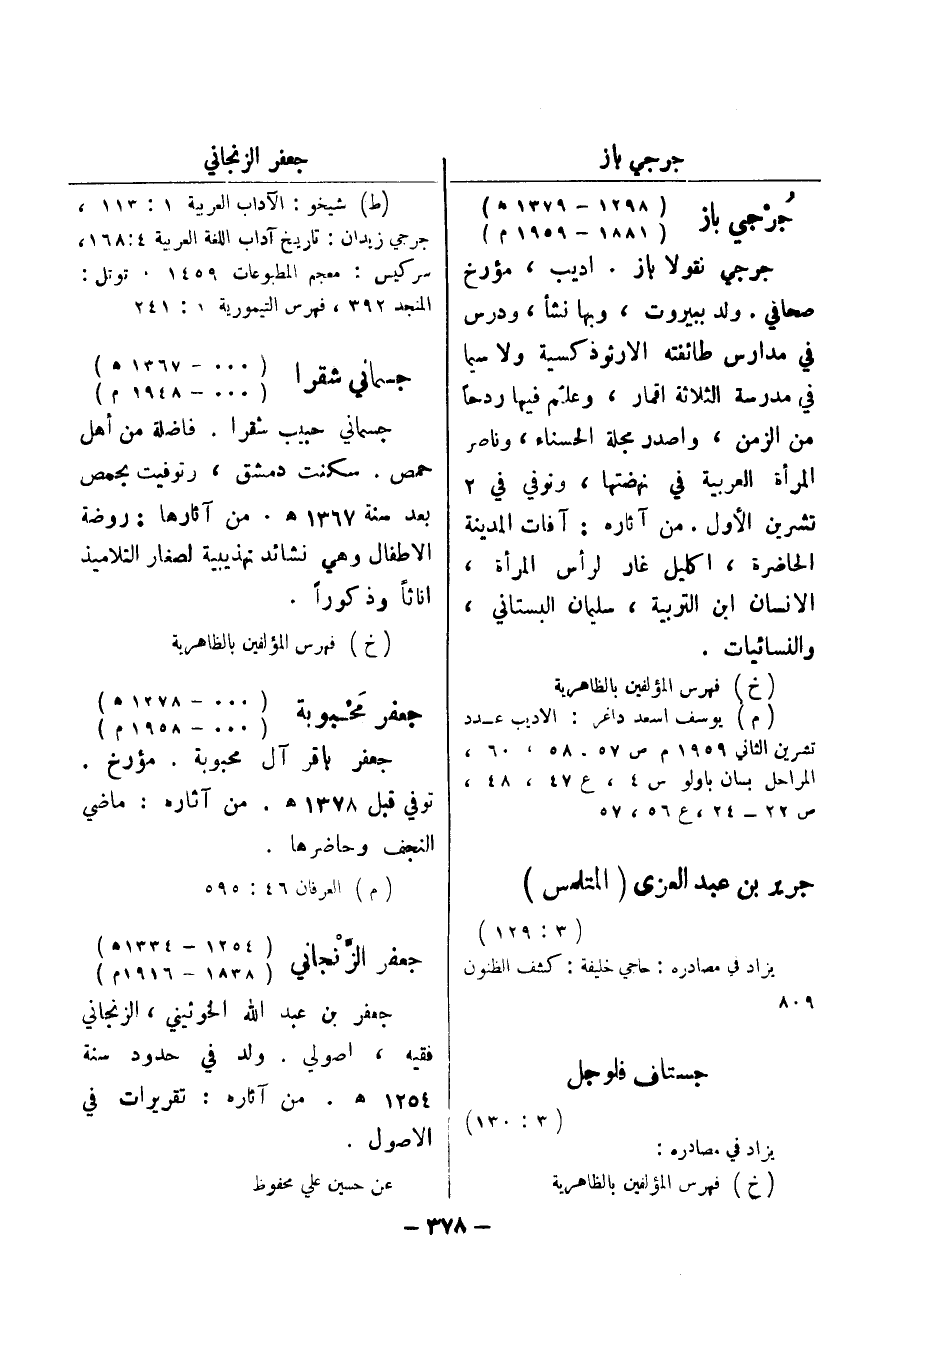 جرجي باز
جُرْجي باز
( ١٢٩٨ – ١٣٧٩ ه )
( ١٨٨١ – ١٩٥٩ م )
جرجي نقولا باز . اديب ، مؤرخ
صحافي . ولد ببيروت ، وبها نشأ ، ودرس
في مدارس طائفته الارثوذكسية ولا سيما
في مدرسة الثلاثة اقمار ، وعلّم فيها ردحاً
من الزمن ، واصدر مجلة الحسناء ، وناصر
المرأة العربية في نهضتها ، وتوفي في ٢
تشرين الأول . من آثاره : آفات المدينة
الحاضرة ، اكليل غار لرأس المرأة ،
الانسان ابن التربية ، سليمان البستاني ،
والنسائيات .
( خ ) فهرس المؤلفين بالظاهرية
( م ) يوسف اسعد داغر : الاديب عـدد
تشرين الثاني ١٩٥٩ م ص ٥٧ . ٥٨ ، ٦٠ ،
المراحل بسان باولو س ٤ ، ع ٤٧ ، ٤٨ ،
ص ٢٢ – ٢٤ ، ع ٥٦ ، ٥٧
جرير بن عبد العزى ( المتلمس )
( ٣ : ١٢٩ )
يزاد في مصادره : حاجي خليفة : كشف الظنون
٨٠٩
جستاف فلوجل
( ٣ : ١٣٠ )
يزاد في مصادره :
( خ ) فهرس المؤلفين بالظاهرية
جعفر الزنجاني
(ط) شيخو : الآداب العربية ١ : ١١٣ ،
جرجي زيدان : تاريخ آداب اللغة العربية ٤:١٦٨،
سركيس : معجم المطبوعات ١٤٥٩ . توتل :
المنجد ٣٩٢ ، فهرس التيمورية ١ : ٢٤١
جسماني شقرا
( ٠٠٠ – ١٣٦٧ ه )
( ٠٠٠ – ١٩٤٨ م )
جسماني حبيب شقرا . فاضلة من أهل
حمص . سكنت دمشق ، وتوفيت بحمص
بعد سنة ١٣٦٧ ه . من آثارها : روضة
الاطفال وهي نشائد تهذيبية لصغار التلاميذ
اناثاً وذكوراً .
( خ ) فهرس المؤلفين بالظاهرية
جعفر مَحْبوبة
( ٠٠٠ – ١٣٧٨ ه )
( ٠٠٠ – ١٩٥٨ م )
جعفر باقر آل محبوبة . مؤرخ .
توفي قبل ١٣٧٨ ه . من آثاره : ماضي
النجف وحاضرها .
( م ) العرفان ٤٦ : ٥٩٥
جعفر الزَّنْجاني
( ١٢٥٤ – ١٣٣٤ه )
( ١٨٣٨ – ١٩١٦م )
جعفر بن عبد الله الخوئيني ، الزنجاني
فقيه ، اصولي . ولد في حدود سنة
١٢٥٤ ه . من آثاره : تقريرات في
الاصول .
عن حسين علي محفوظ
– ٣٧٨ –